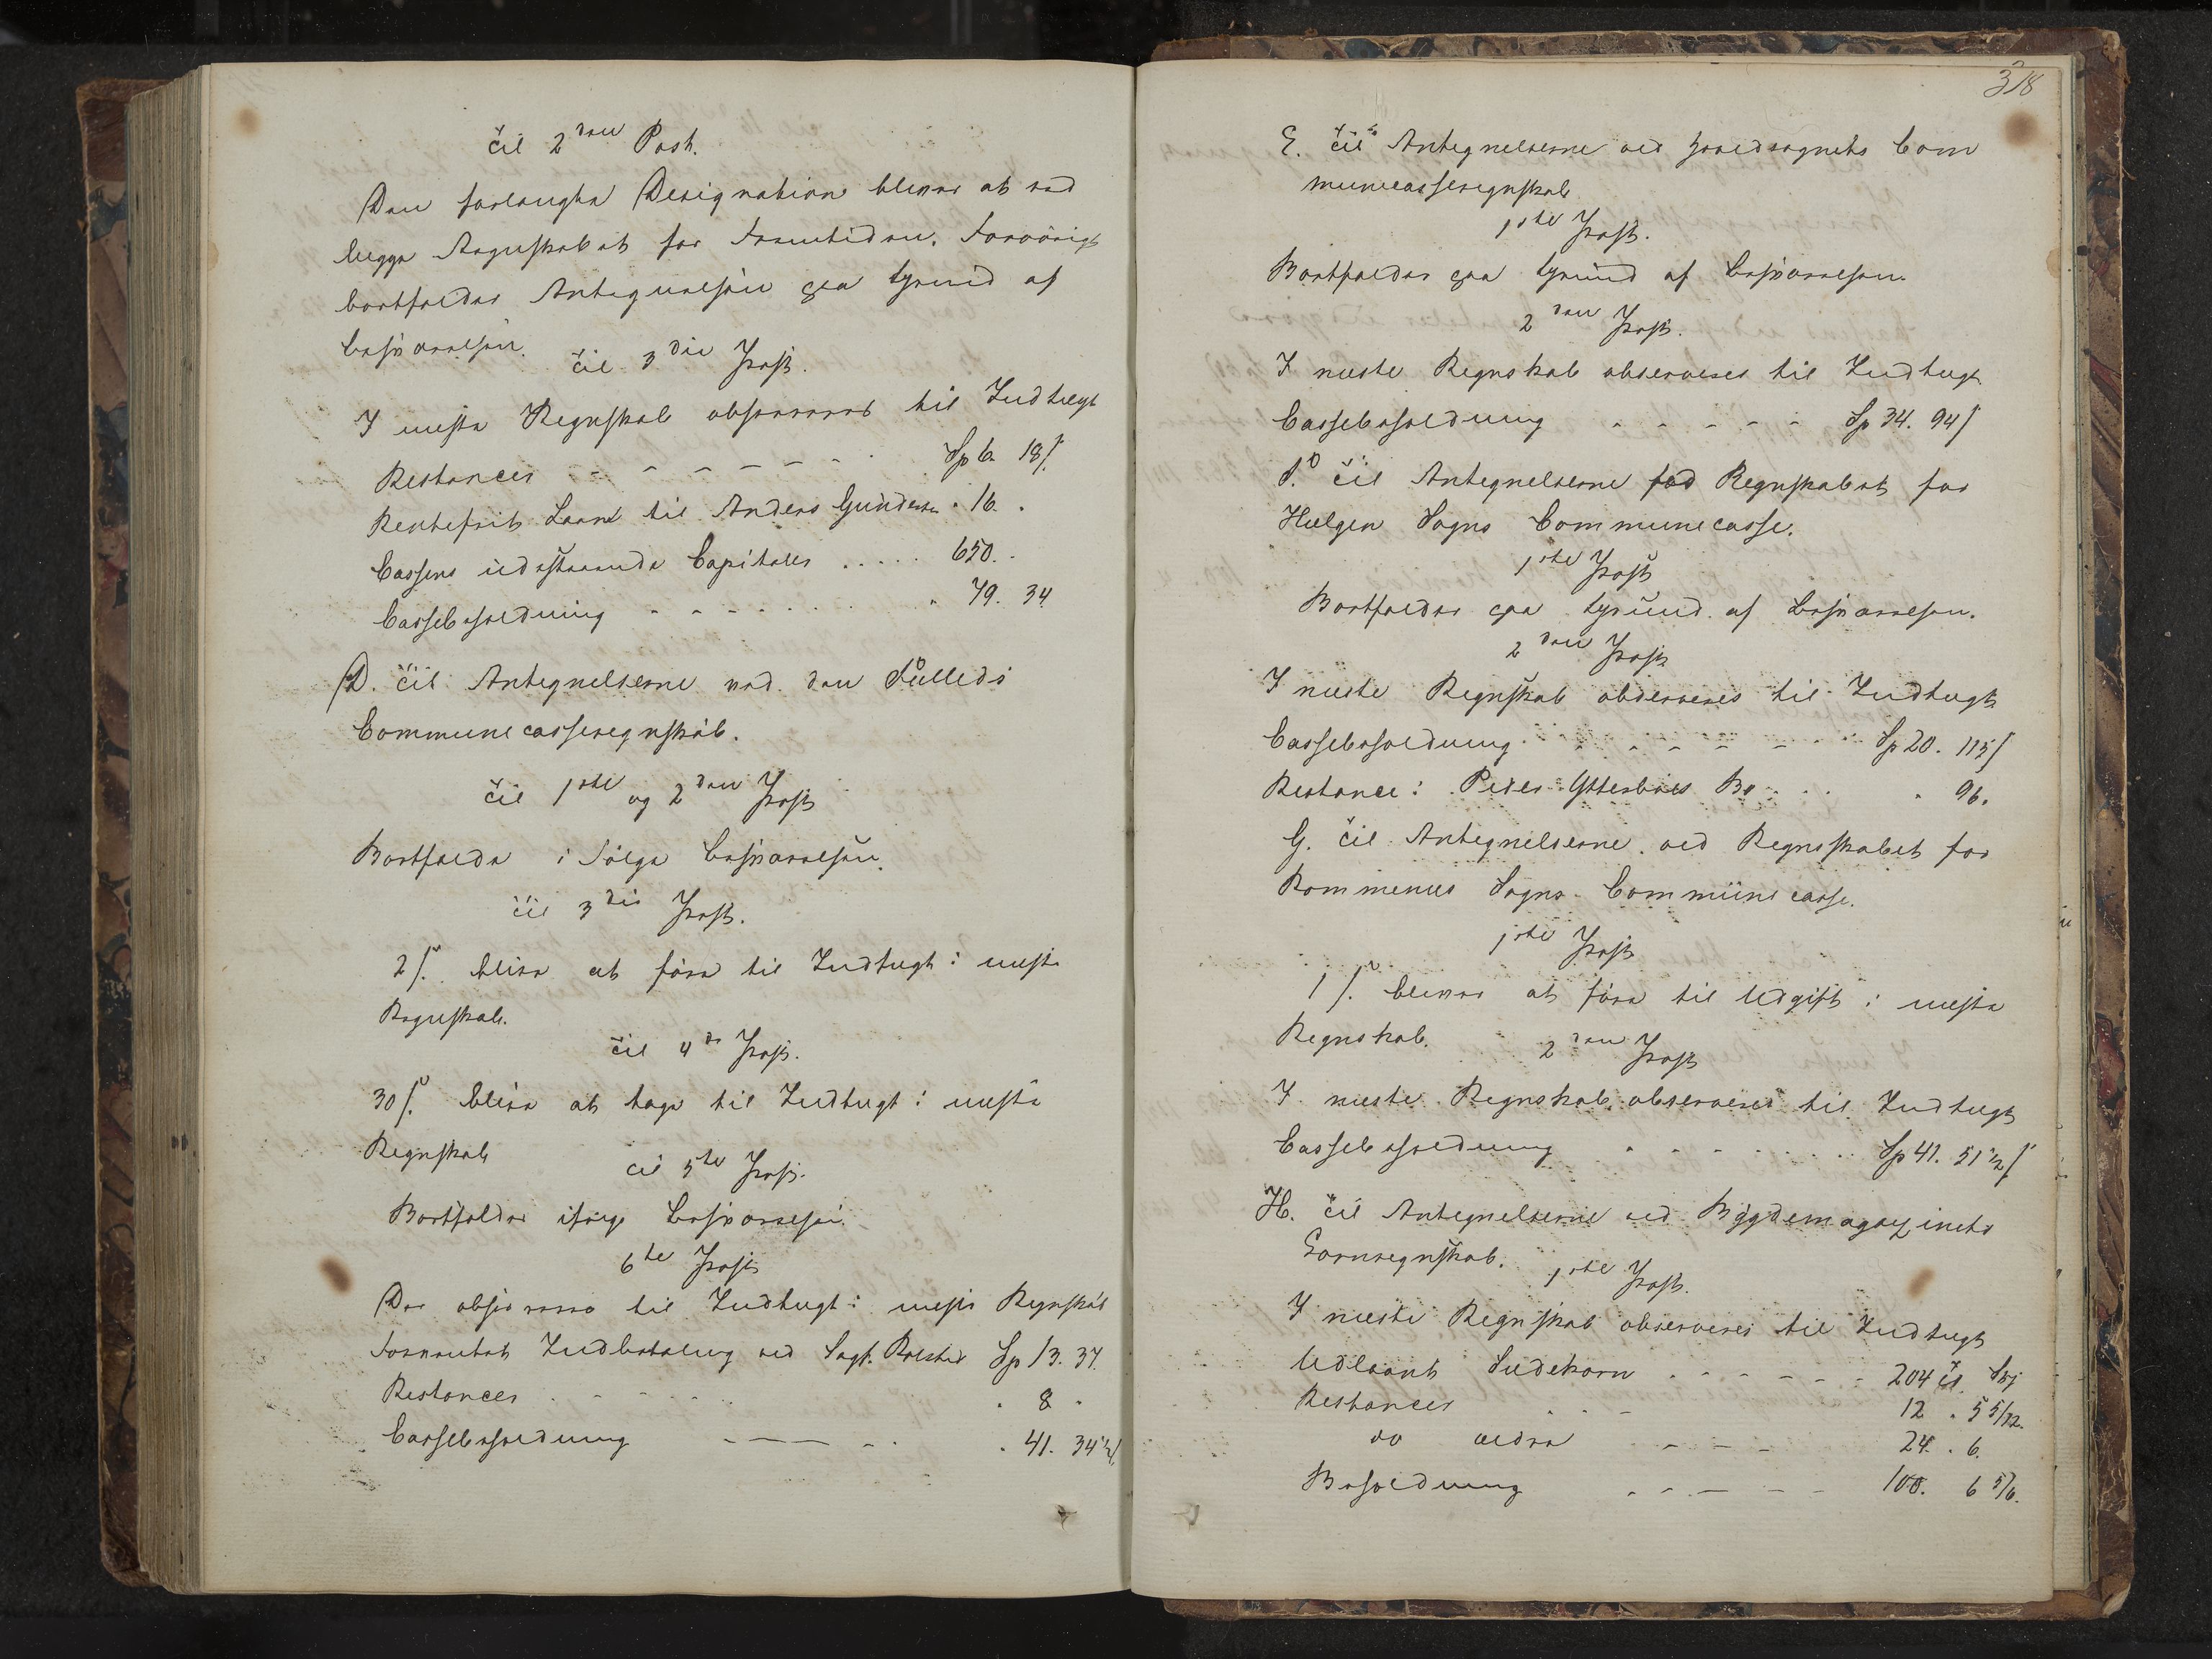 Til 2den Post.
Den forlangte Designation bliver at ved
lægge Regnskabet for Fremtiden. Forøvrigt
bortfalder Antegnelsen paa Grund af
Besvarelsen.
Til 3die Post.
I næste Regnskab observeres til Indtægt
Restancer - - - - - - Sp 6. 18 s.
Rentefrit Laan til Anders Gundersen " 16. "
Cassens udestaaende Capitaler ..... 650. "
Cassebeholdning - - - - - - " 79. 34
D. Til Antegnelserne ved den fælleds
Communecasseregnskab.
Til 1ste og 2den Post
Bortfalde i Følge Besvarelsen.
Til 3die Post.
2 s. blive at føre til Indtægt i næste
Regnskab.
Til 4de Post.
30 s. blive at tage til Indtægt i næste
Regnskab
Til 5te Post.
Bortfalder ifølge Besvarelsen.
6te Post
Der observeres til Indtægt i næste Regnskab
Forventet Indbetaling ved Sp 13. 37.
Restancer - - - - " 8 "
Cassebeholdning - - - - " 41. 34 1/2 s
318
E. Til Antegnelserne ved Hovedsognets Com
munecasseregnskab
1ste Post.
Bortfalder paa Grund af Besvarelsen.
2den Post.
I næste Regnskab observeres til Indtægt
Cassebeholdning - - - - - Sp 34. 94 s
F. Til Antegnelserne ved Regnskabet for
Helgen Sogns Communecasse.
1ste Post
Bortfalder paa Grund af Besvarelsen.
2den Post
I næste Regnskab observeres til Indtægt
Cassebeholdning - - - - - Sp 20. 115 s
Restance: Peder Ytterbøes Bo . . . " 96.
G. Til Antegnelserne ved Regnskabet for
Rommenes Sogns Communecasse.
1ste Post
1 s. bliver at føre til Udgift i næste
Regnskab.
2den Post
I næste Regnskab observeres til Indtægt
Cassebeholdning - - - - - - Sp 41. 51 1/2 s
H. Til Antegnelserne ved Bygdemagazinets
Cornregnskab.
1ste Post.
I næste Regnskab observeres til Indtægt
Udlaant Sædekorn - - - - - - 204 Td.
Restancer - - - 12 " 5 5/12.
do ældre - - - - 24. " 6.
Beholdning - - - - - 100. 6 5/6.